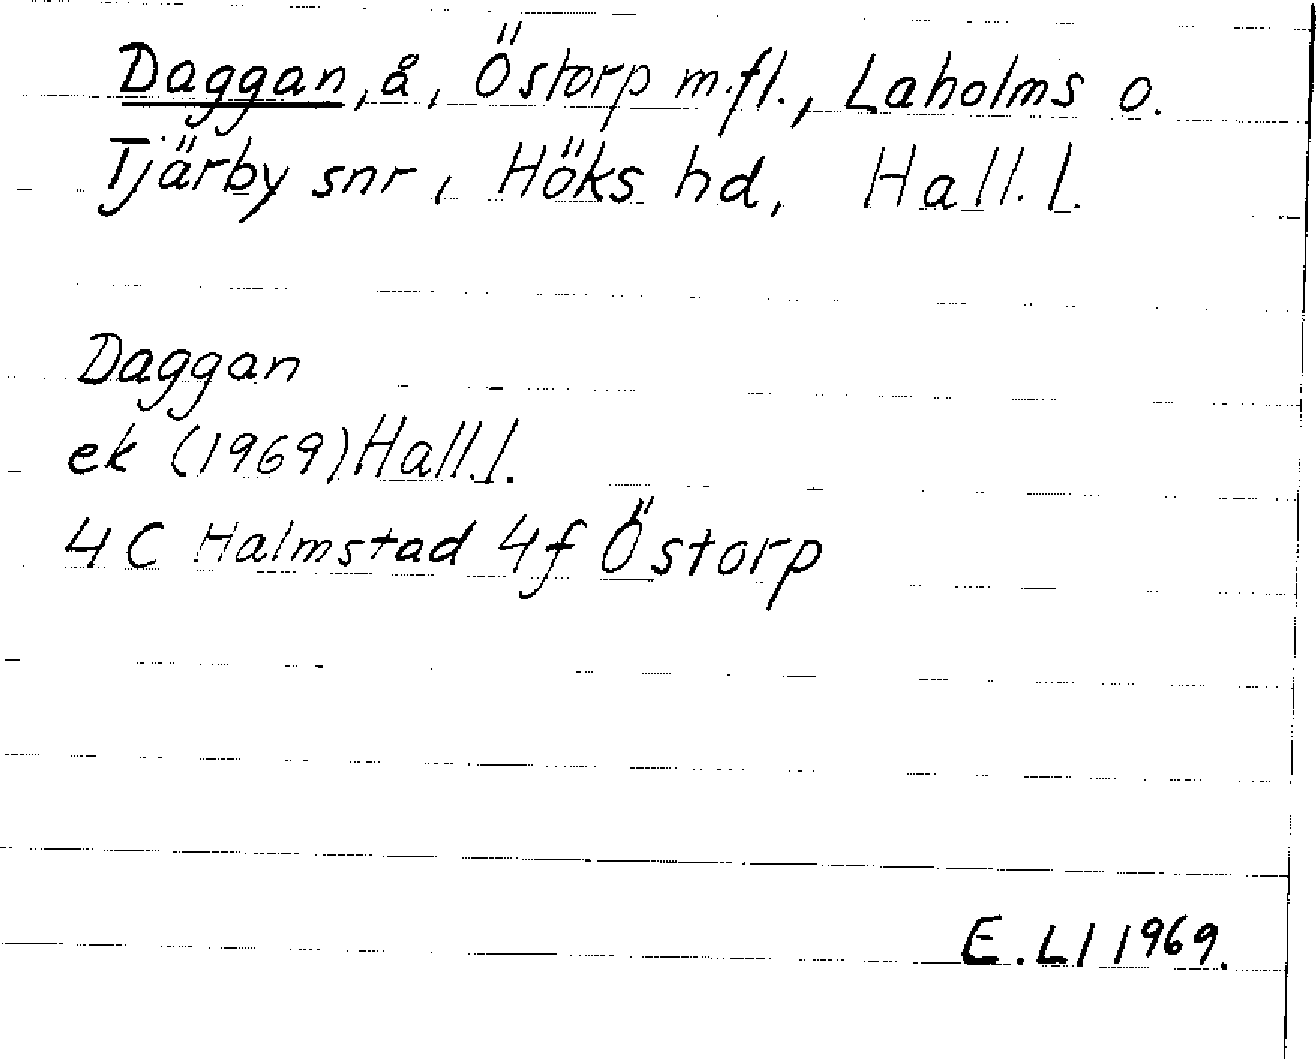 Daggan, å, Östorp m.fl., Laholms o.
Tjärby snr, Höks hd, Hall. l.
Daggan
ek (1969) Hall. l.
4C Halmstad 4f Östorp
E. Ll 1969.